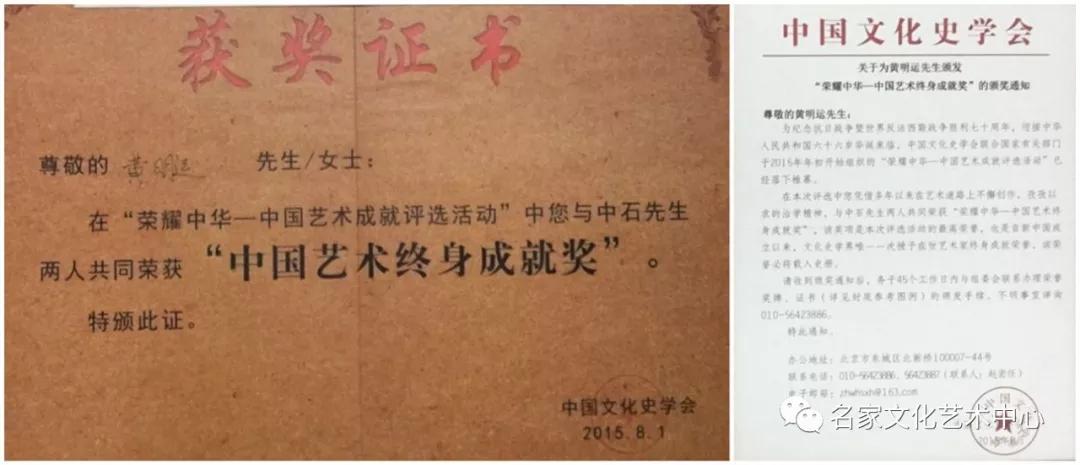 获奖证书
尊敬的 黄明运 先生/女士：
在“荣耀中华—中国艺术成就评选活动”中您与中石先生
两人共同荣获“中国艺术终身成就奖”。
特颁此证。
中国文化史学会
2015.8.1
中国文化史学会
关于为黄明运先生颁发
“荣耀中华—中国艺术终身成就奖”的颁奖通知
尊敬的黄明运先生：
为纪念抗日战争暨世界反法西斯战争胜利七十周年，迎接中华
人民共和国六十六岁华诞来临，中国文化史学会联合国家有关部门
于2015年年初开始组织的“荣耀中华—中国艺术成就评选活动”已
经落下帷幕。
在本次评选中您凭借多年以来在艺术道路上不懈创作，孜孜以
求的治学精神，与中石先生两人共同荣获“荣耀中华—中国艺术终
身成就奖”，该奖项是本次评选活动的最高荣誉，也是自新中国成
立以来，文化史学界唯一一次授予在世艺术家终身成就荣誉，该荣
誉必将载入史册。
请收到颁奖通知后，务于45个工作日内与组委会联系办理荣誉
奖牌、证书（详见封底参考图例）的颁发手续，不明事宜详询
010-56423886。
特此通知。
办公地址：北京市东城区北新桥100007-44号
联系电话：010-56423886、56423887（联系人：赵宏任）
电子邮箱：zhwhsxh@163.com
中国文化
2015年8.1
名家文化艺术中心